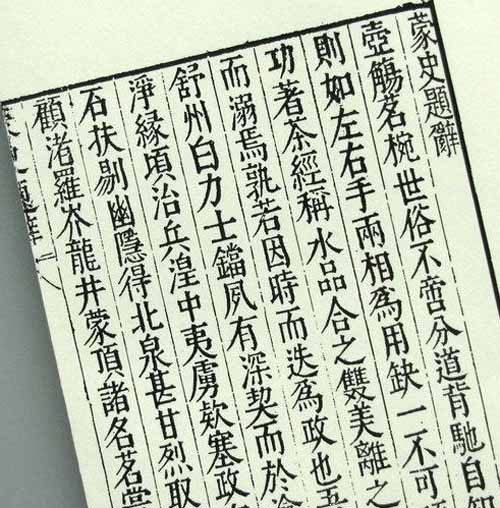 蒙史題辭
壺觴茗椀世俗不啻分道背馳自知
則如左右手兩相爲用缺一不可
功著茶經稱水品合之雙美離之
而溺焉孰若因時而迭爲政也五
舒州白力士鐺夙有深契而於
淨緣頃治兵湟中夷虜欵塞政
石扶剔幽隱得北泉甚甘烈取
顧渚羅岕龍井蒙頂諸名茗嘗